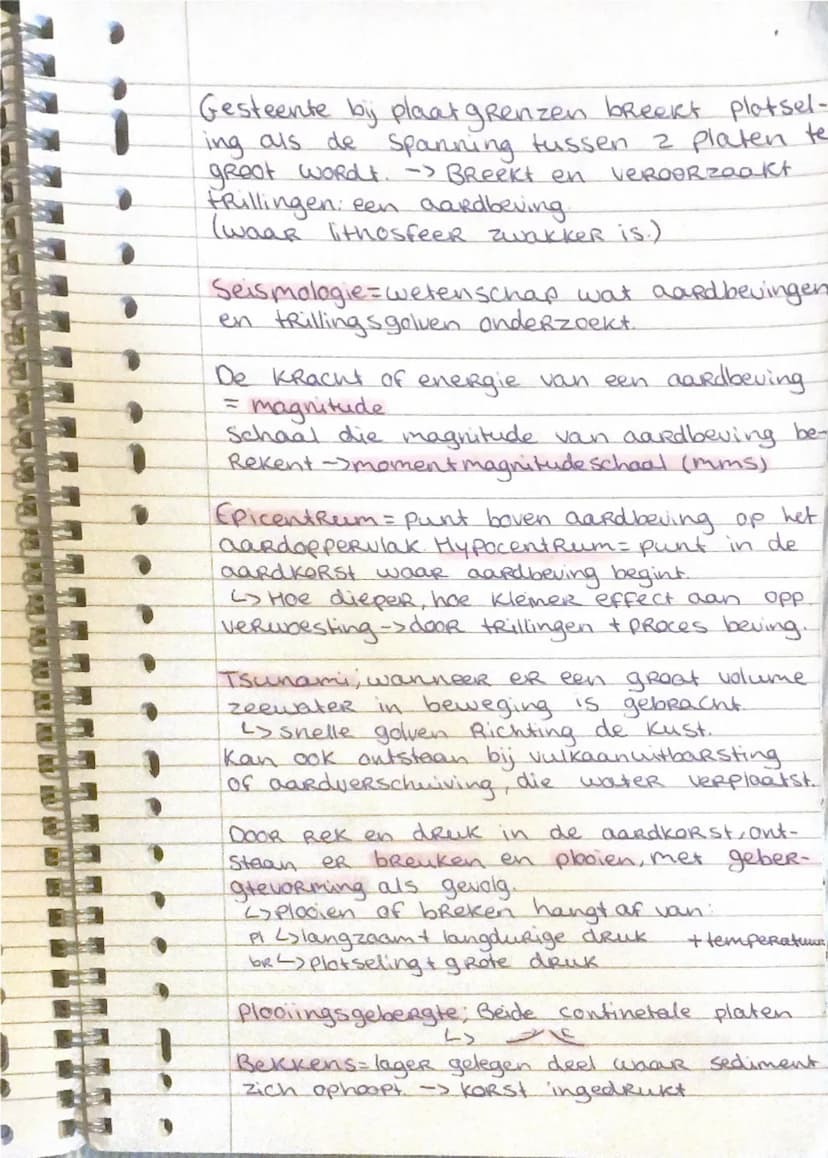 Gesteente bij plaatgrenzen breekt plotsel-
ing als de spanning tussen 2 platen te
groot wordt. -> Breekt en veroorzaakt
trillingen: een aardbeving
(waar lithosfeer zwakker is.)
Seismologie = wetenschap wat aardbevingen
en trillingsgolven onderzoekt.
De kracht of energie van een aardbeving
= magnitude
Schaal die magnitude van aardbeving be-
rekent -> momentmagnitudeschaal (mms)
Epicentrum = punt boven aardbeving op het
aardoppervlak. Hypocentrum = punt in de
aardkorst waar aardbeving begint.
↳ Hoe dieper, hoe kleiner effect aan opp.
verwoesting -> door trillingen + proces beving.
Tsunami; wanneer er een groot volume
zeewater in beweging is gebracht.
↳ snelle golven richting de kust.
Kan ook ontstaan bij vulkaanuitbarsting
of aardverschuiving, die water verplaatst.
Door rek en druk in de aardkorst, ont-
staan er breuken en plooien, met geber-
gtevorming als gevolg.
↳ plooien of breken hangt af van:
pl ↳ langzaam + langdurige druk + temperatuur
br ↳ plotseling + grote druk
Plooiingsgebergte; Beide continetale platen
↳
Bekkens = lager gelegen deel waar sediment
zich ophoopt. -> korst ingedrukt